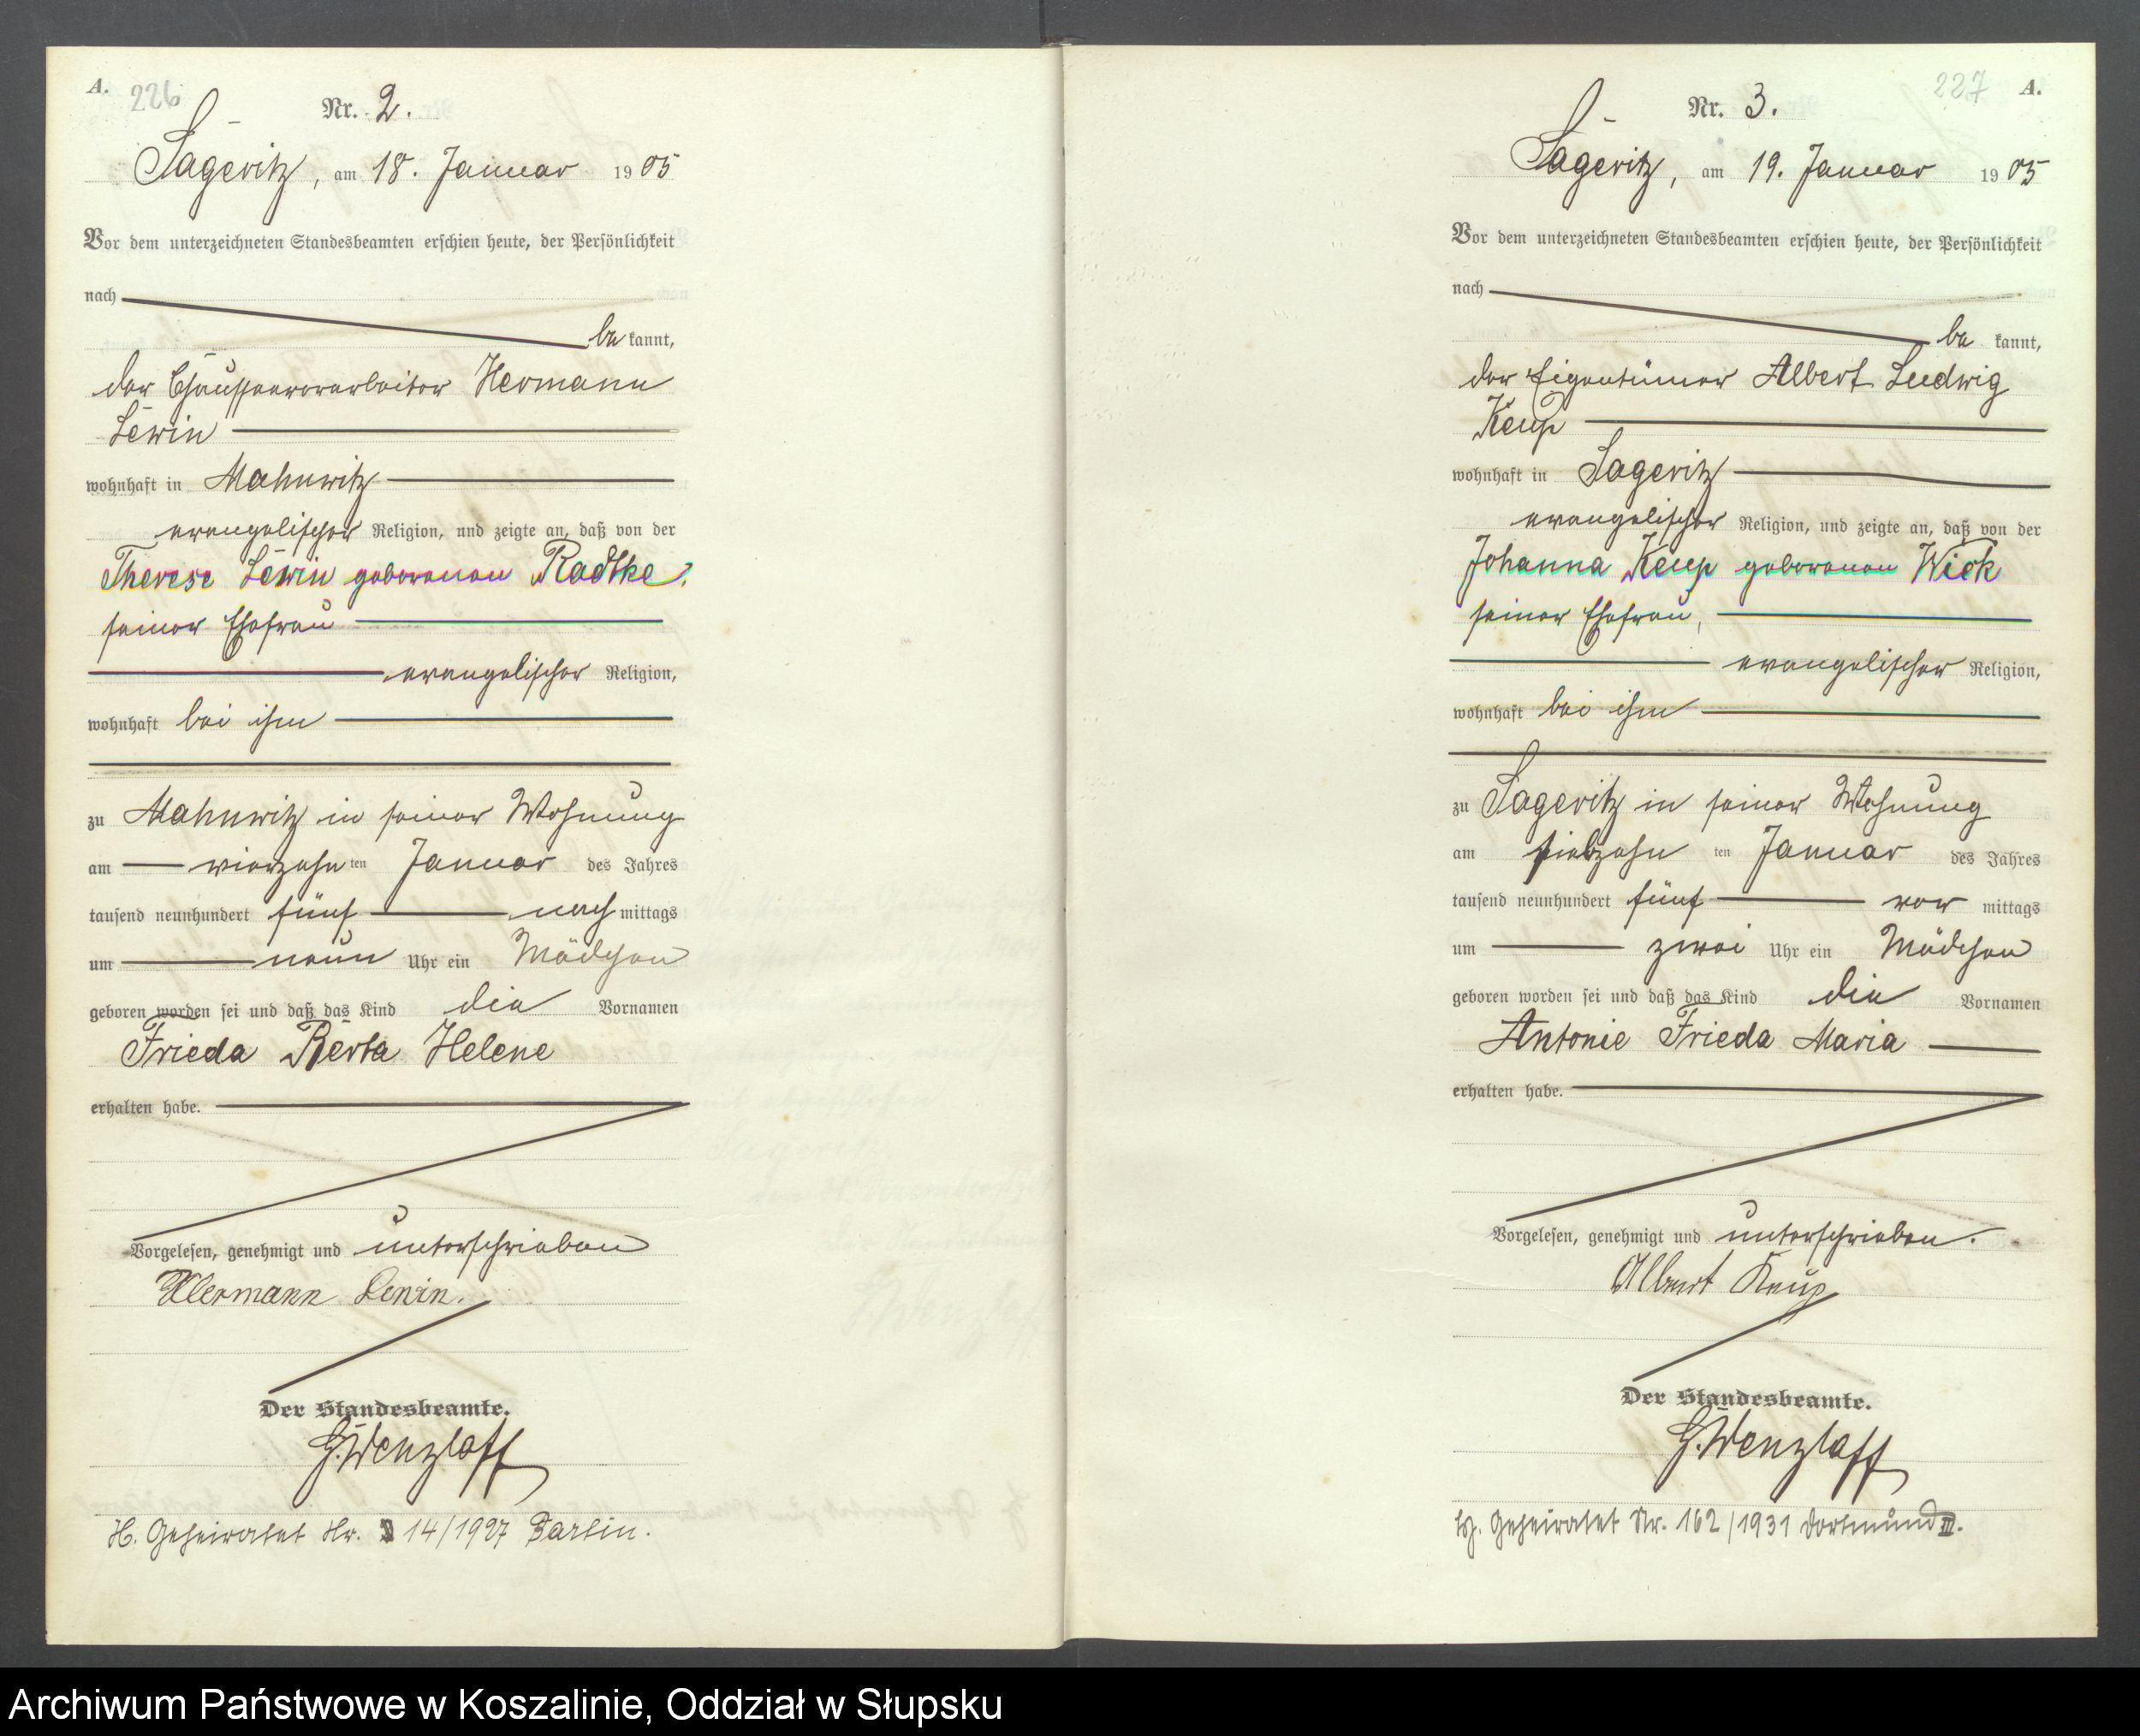 A. 226
Nr. 2.
Sageritz, am 18. Januar 1905
Vor dem unterzeichneten Standesbeamten erschien heute, der Persönlichkeit
nach
be kannt,
der Chausseevorarbeiter Hermann
Lewin
wohnhaft in Mahnwitz
evangelischer Religion, und zeigte an, daß von der
Therese Lewin geborenen Radtke,
seiner Ehefrau
evangelischer Religion,
wohnhaft bei ihm
zu Mahnwitz in seiner Wohnung
am vierzehn ten Januar des Jahres
tausend neunhundert fünf nach mittags
um neun Uhr ein Mädchen
geboren worden sei und daß das Kind die Vornamen
Frieda Berta Helene
erhalten habe.
Vorgelesen, genehmigt und unterschrieben
Hermann Lewin.
Der Standesbeamte.
G. Wenzlaff
H. Geheiratet Nr. 14/1927 Barzin.
227 A.
Nr. 3.
Sageritz, am 19. Januar 1905
Vor dem unterzeichneten Standesbeamten erschien heute, der Persönlichkeit
nach
be kannt,
der Eigentümer Albert Ludwig
Keup
wohnhaft in Sageritz
evangelischer Religion, und zeigte an, daß von der
Johanna Keup geborenen Wick
seiner Ehefrau,
evangelischer Religion,
wohnhaft bei ihm
zu Sageritz in seiner Wohnung
am siebzehn ten Januar des Jahres
tausend neunhundert fünf vor mittags
um zwei Uhr ein Mädchen
geboren worden sei und daß das Kind die Vornamen
Antonie Frieda Maria
erhalten habe.
Vorgelesen, genehmigt und unterschrieben.
Albert Keup
Der Standesbeamte.
G. Wenzlaff
Geheiratet Nr. 162/1931 Dortmund III.
Archiwum Państwowe w Koszalinie, Oddział w Słupsku